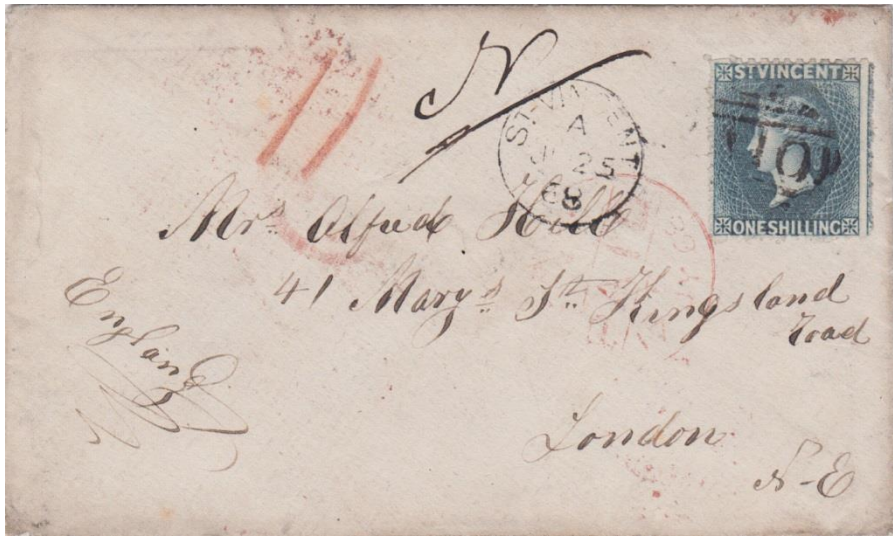 11
N
ST VINCENT
ONE SHILLING
ST-VINCENT
A
25
68
Mrs Alfred Hill
41 Mary's St Kingsland
road
England
London
N-E